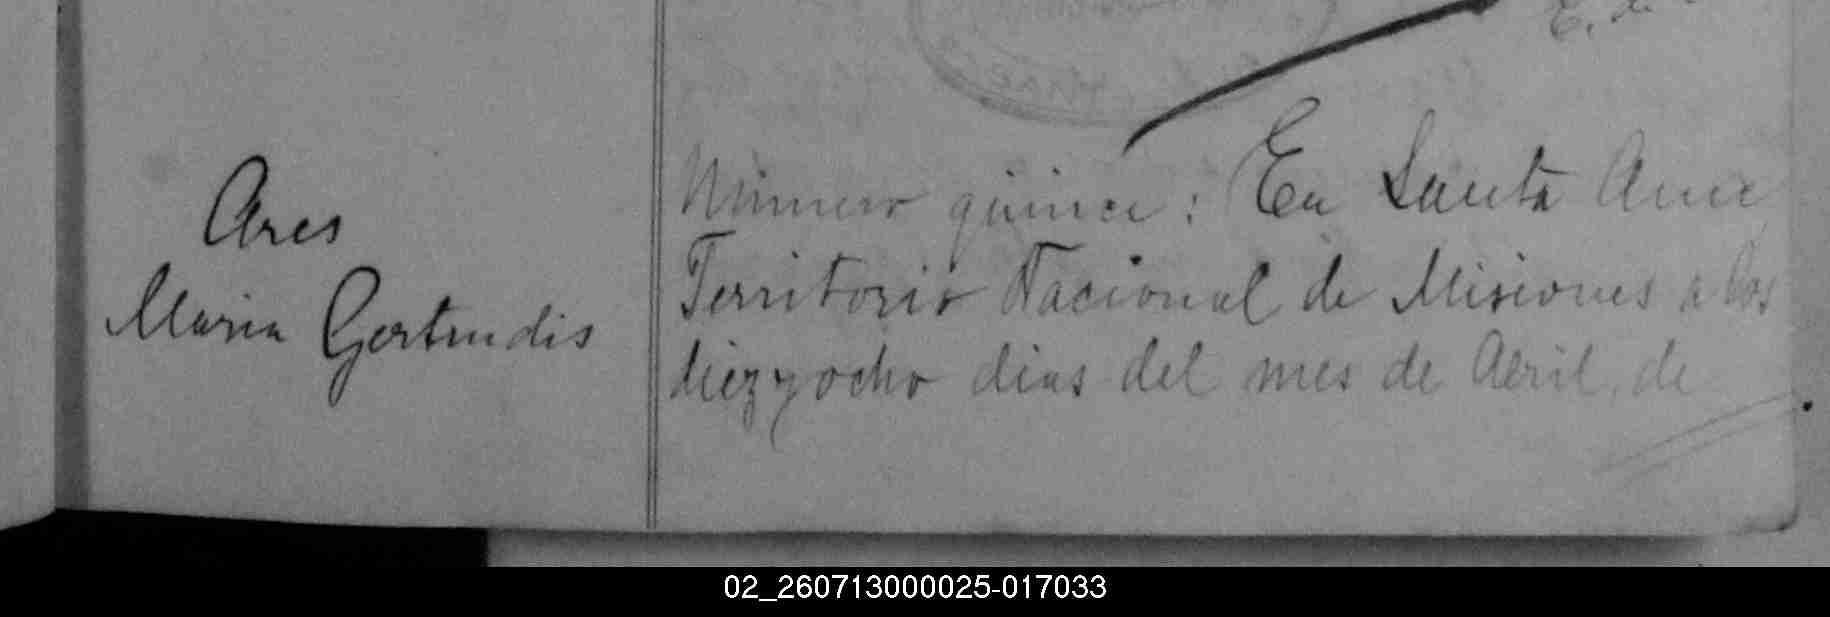 E. de
Ares
Maria Gertrudis
Número quince: En Santa Ana
Territorio Nacional de Misiones a los
diezyocho dias del mes de Abril, de
02_260713000025-017033